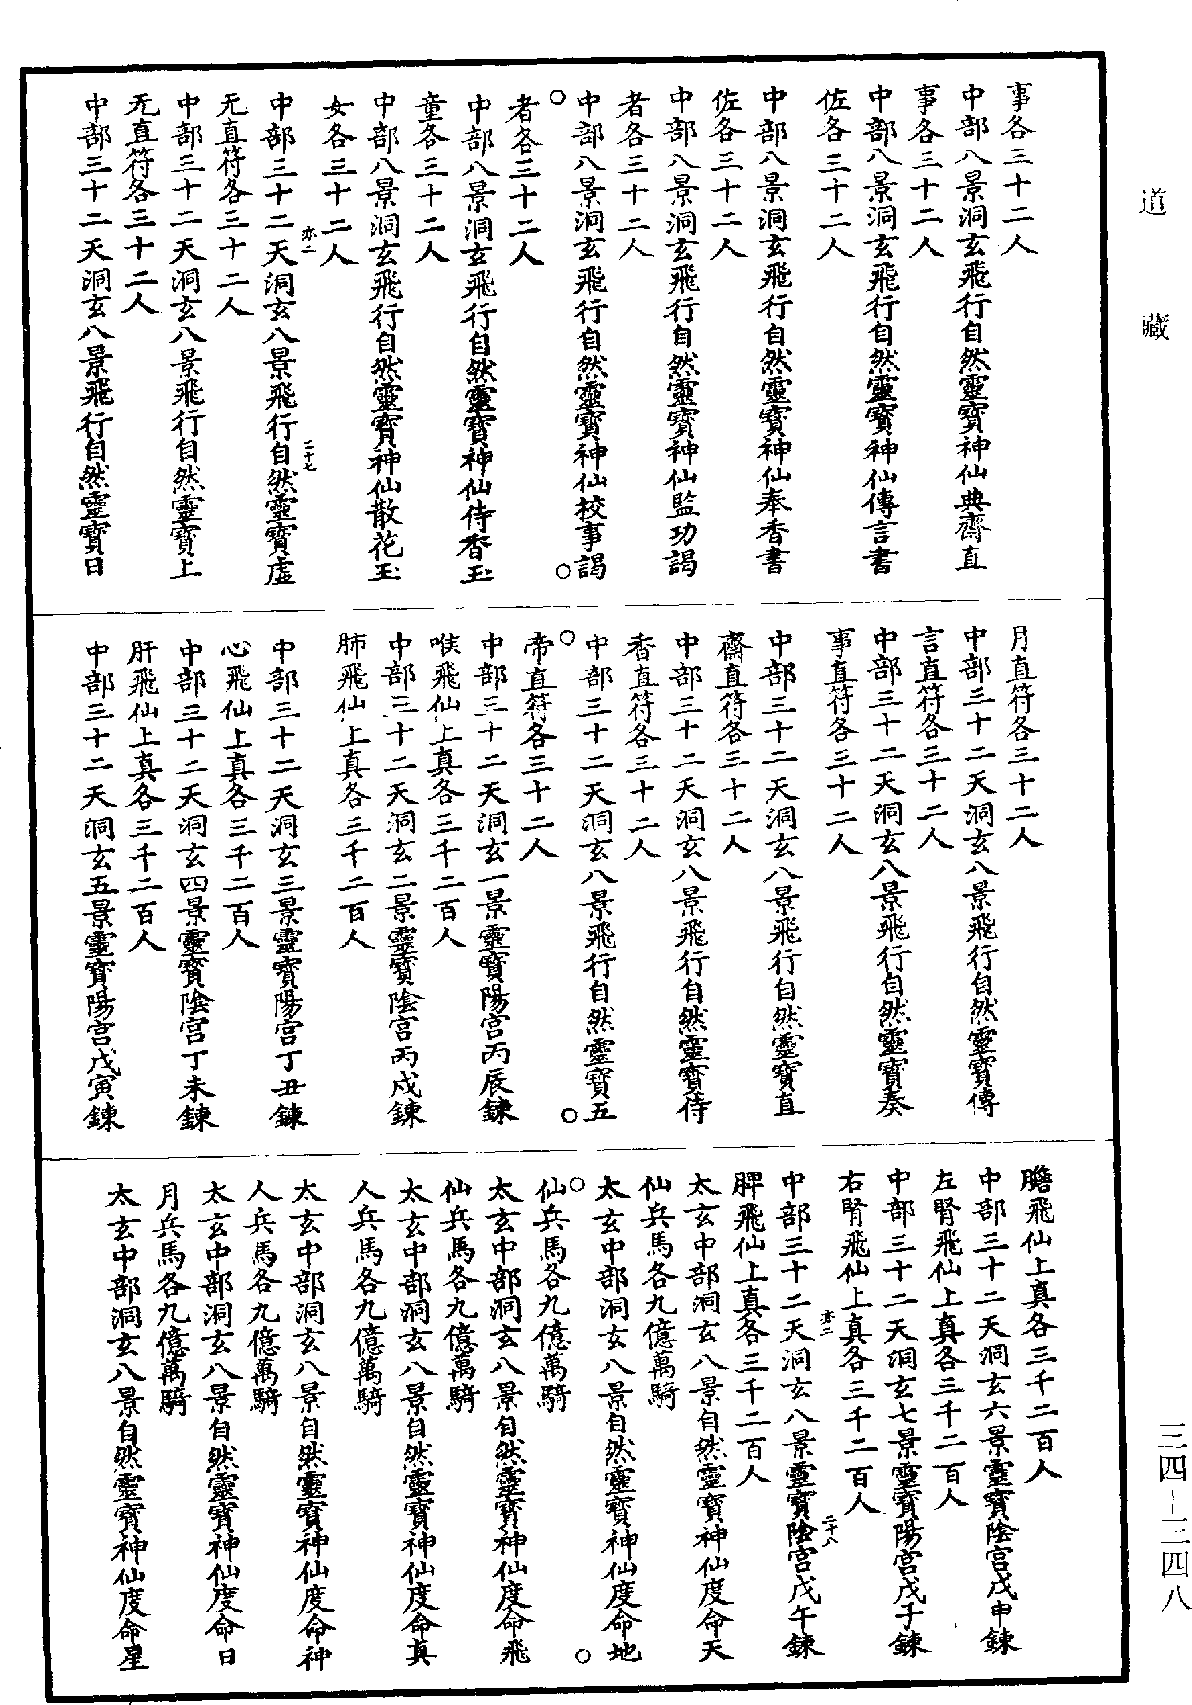 道藏
事各三十二人
中部八景洞玄飛行自然靈寶神仙典齋直
事各三十二人
中部八景洞玄飛行自然靈寶神仙傳言書
佐各三十二人
中部八景洞玄飛行自然靈寶神仙奉香書
佐各三十二人
中部八景洞玄飛行自然靈寶神仙監功謁
者各三十二人
中部八景洞玄飛行自然靈寶神仙校事謁
者各三十二人
中部八景洞玄飛行自然靈寶神仙侍香玉
童各三十二人
中部八景洞玄飛行自然靈寶神仙散花玉
女各三十二人
亦二 二十七
中部三十二天洞玄八景飛行自然靈寶虛
无直符各三十二人
中部三十二天洞玄八景飛行自然靈寶上
无直符各三十二人
中部三十二天洞玄八景飛行自然靈寶日
月直符各三十二人
中部三十二天洞玄八景飛行自然靈寶傳
言直符各三十二人
中部三十二天洞玄八景飛行自然靈寶奏
事直符各三十二人
中部三十二天洞玄八景飛行自然靈寶直
齋直符各三十二人
中部三十二天洞玄八景飛行自然靈寶侍
香直符各三十二人
中部三十二天洞玄八景飛行自然靈寶五
帝直符各三十二人
中部三十二天洞玄一景靈寶陽宮丙辰鍊
喉飛仙上真各三千二百人
中部三十二天洞玄二景靈寶陰宮丙戌鍊
肺飛仙上真各三千二百人
中部三十二天洞玄三景靈寶陽宮丁丑鍊
心飛仙上真各三千二百人
中部三十二天洞玄四景靈寶陰宮丁未鍊
肝飛仙上真各三千二百人
中部三十二天洞玄五景靈寶陽宮戊寅鍊
膽飛仙上真各三千二百人
中部三十二天洞玄六景靈寶陰宮戊申鍊
左腎飛仙上真各三千二百人
中部三十二天洞玄七景靈寶陽宮戊子鍊
右腎飛仙上真各三千二百人
亦二 二十八
中部三十二天洞玄八景靈寶陰宮戊午鍊
脾飛仙上真各三千二百人
太玄中部洞玄八景自然靈寶神仙度命天
仙兵馬各九億萬騎
太玄中部洞玄八景自然靈寶神仙度命地
仙兵馬各九億萬騎
太玄中部洞玄八景自然靈寶神仙度命飛
仙兵馬各九億萬騎
太玄中部洞玄八景自然靈寶神仙度命真
人兵馬各九億萬騎
太玄中部洞玄八景自然靈寶神仙度命神
人兵馬各九億萬騎
太玄中部洞玄八景自然靈寶神仙度命日
月兵馬各九億萬騎
太玄中部洞玄八景自然靈寶神仙度命星
三四-二四八